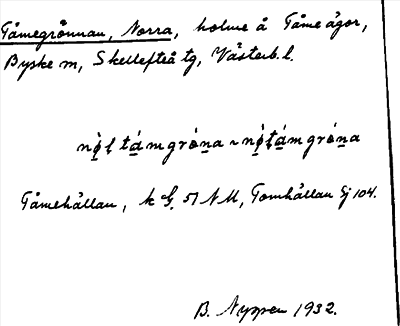 Tåmegrönnan, Norra, holme å Tåme ågor,
Byske m, Skellefteå tg, Västerb. l.
nǫ̀l támgrȯna ~ nǫ̀ltámgrȯna
Tåmehällan, k G. 51 NM, Tomhällan Gj 104.
B. Nyssen 1932.